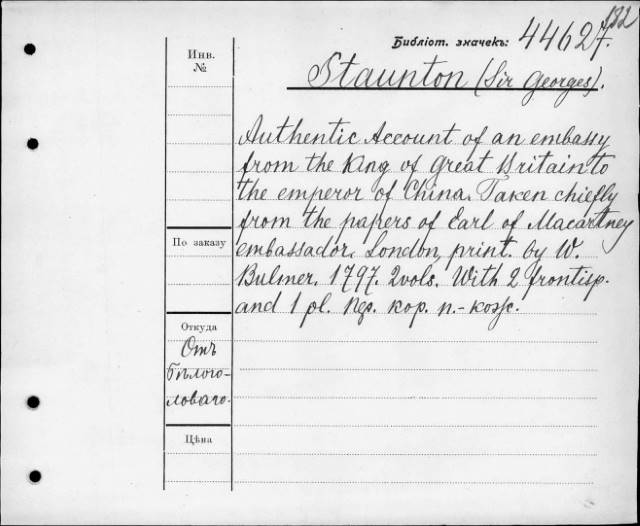 182
Библіот. значекъ: 44627.
Инв.
№
Staunton (Sir Georges).
Authentic Account of an embassy
from the King of Great Britain to
the emperor of China. Taken chiefly
from the papers of Earl of Macartney
embassador. London, print. by W.
Bulmer. 1797. 2vols. With 2 frontisp.
and 1 pl. Пер. кор. п.-кож.
По заказу
Откуда
Отъ
Бѣлого-
ловаго.
Цѣна